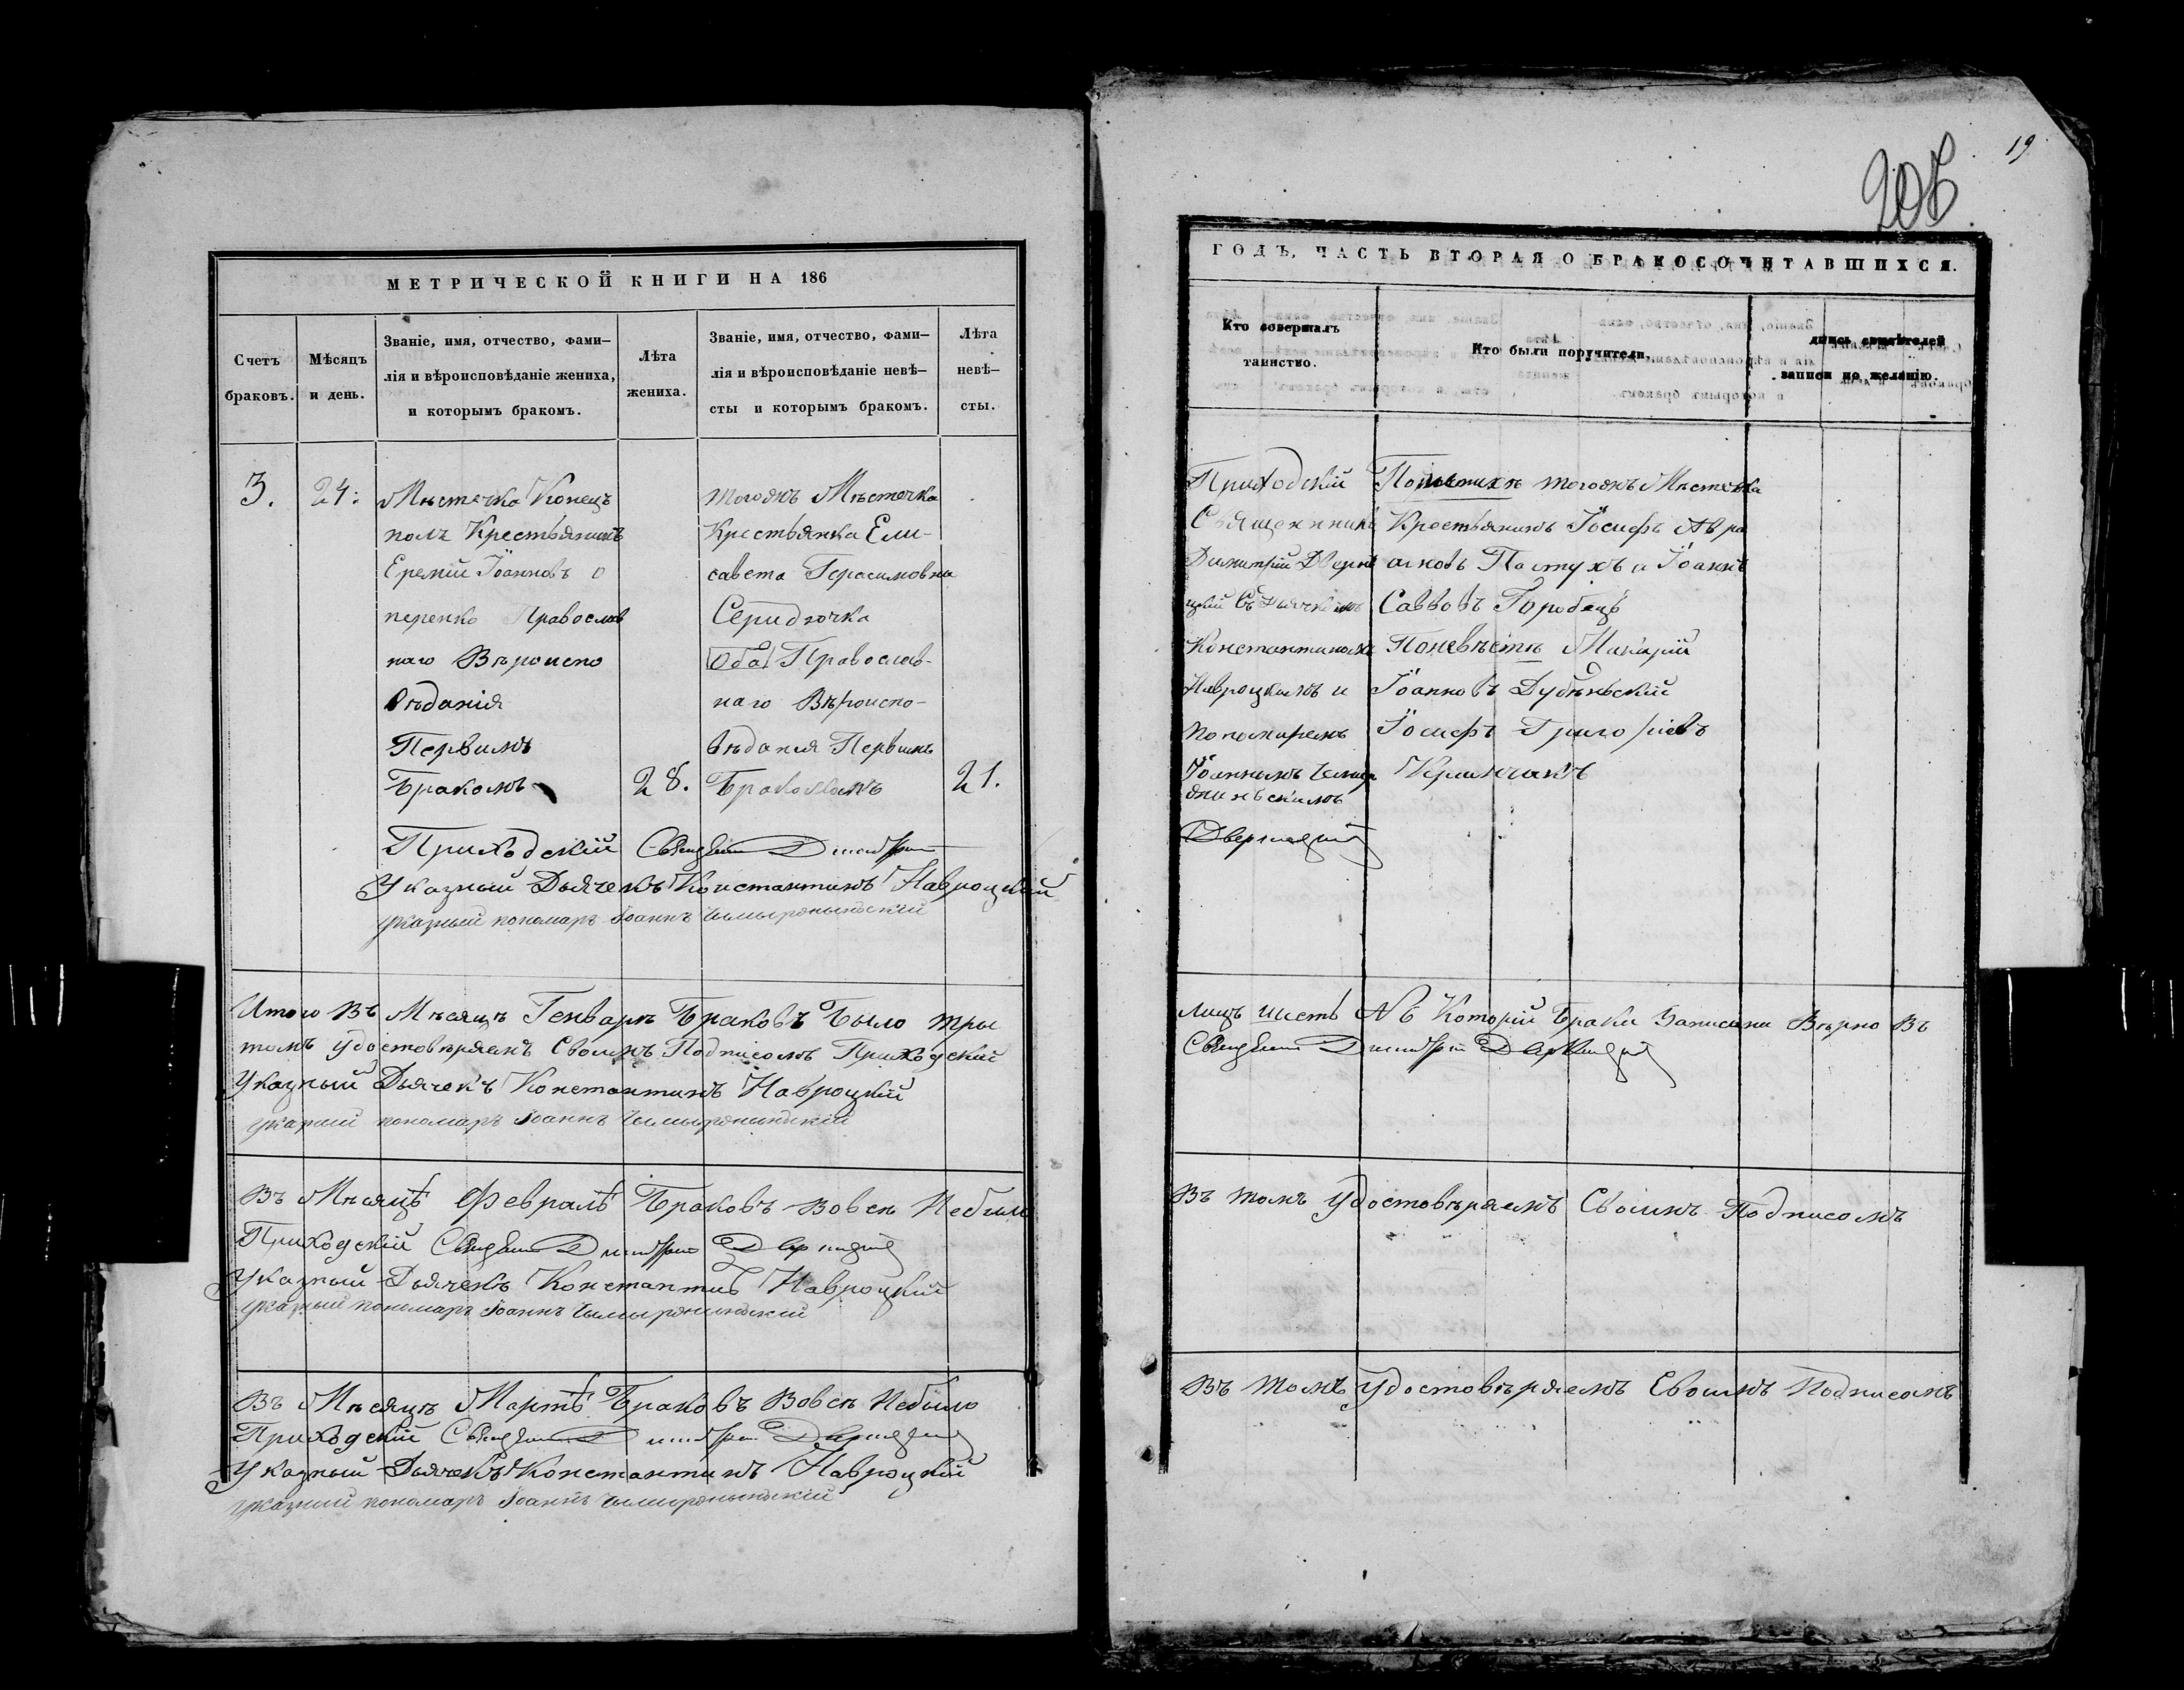 МЕТРИЧЕСКОЙ КНИГИ НА 186
Счетъ браковъ.
Мѣсяцъ и день.
Званіе, имя, отчество, фами–
лія и вѣроисповѣданіе жениха,
и которымъ бракомъ.
Лѣта
жениха.
Званіе, имя, отчество, фами–
лія и вѣроисповѣданіе невѣ–
сты и которымъ бракомъ.
Лѣта
невѣ–
сты.
3.
24.
Мѣстечка Конец
полъ Крестьянинъ
Еремій Іоанновъ О
перенко Православ
наго Вѣроиспо
вѣданія
Первимъ
Бракомъ
28.
тогожъ Мѣстечка
Крестьянка Ели-
савета Герасимовна
Середючка
Оба Православ-
наго Вѣроиспо-
вѣданія Первимъ
Бракомъ
21.
Приходскій Священ Димитрій
Указный Дьячекъ Константинъ Навроцкий
указный пономарь Іоаннъ
Итого Въ Мѣсяцѣ Генварѣ Браковъ Было тры
томъ удостовѣряемъ Своимъ Подписомъ Приходский
Указный Дьячекъ Константинъ Навроцкий
указный пономарь Іоаннъ
Въ Мѣсяцѣ Февралѣ Браковъ Вовсе Небило
Приходскій Священ Димитрій
Указный Дьячекъ Константинъ Навроцкий
указный пономарь Іоаннъ
Въ Мѣсяцѣ Мартѣ Браковъ Вовсе Небыло
Приходский Священ Димитрій
Указный Дьячекъ Константинъ Навроцкий
указный пономарь Іоаннъ
19
205
ГОДЪ, ЧАСТЬ ВТОРАЯ О БРАКОСОЧИТАВШИХСЯ.
Кто совершалъ
таинство.
Кто были поручители.
дпись свидѣтелей
записи по желанію.
Приходскій
Священникъ
Димитрій Дверни
цкій Съ Дьячкомъ
Константиномъ
Навроцкимъ и
пономаремъ
Іоанномъ
По женихѣ тогожъ Мѣстечка
Крестьянинъ Іосифъ Авра
амовъ Пастухъ и Іоаннъ
Саввовъ Горобецъ
Поневѣстѣ Макарій
Іоанновъ Дубѣньский
Іосифъ Григоріевъ
Кринчакъ
лицъ шесть Которій Браки Записани Вѣрно Въ
Священ Димитрій
Въ томъ удостовѣряемъ Своимъ Подписомъ
Въ томъ удостовѣряемъ Своимъ Подписомъ